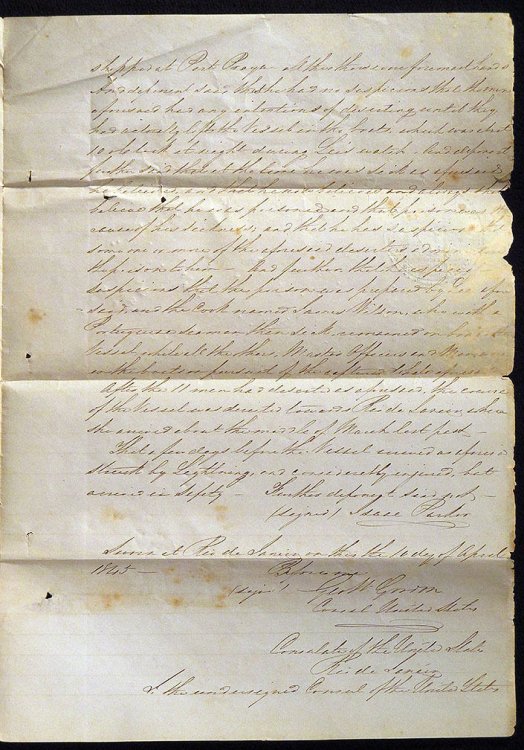 shipped at Port Praya
And deponent said that he had no suspicions that the men
aforesaid had any intentions of deserting until they
had actually left the Vessel in the boats, which was about
10 o'clock at night during his watch. And deponent
further said that at the time he was sick as aforesaid
he believes, and that he has believed and always
believed that he was poisoned and that poison was the
cause of his sickness, and that he has suspicions that
some one or more of the aforesaid deserters administered
the poison to him — And further that he expresses
suspicions that the poison was prepared by the afore
said and the Cook named James Wilson, who with a
Portuguese seaman the sick remained on board the
Vessel, while all the others, Master Officers and Men were
in the boats in pursuit of the
After the 11 men had deserted as aforesaid, the course
of the Vessel was directed towards Rio de Janeiro, where
she arrived about the middle of March last past —
That a few days before the Vessel arrived as aforesaid
struck by Lightning, and considerably injured, but
arrived in Safety — Further deponent said not, —
(signed) Isaac Parker
Sworn at Rio de Janeiro on this the 10 day of April
1845 — Before me
(signed) Geo W. Gordon
Consul United States
Consulate of the United States
Rio de Janeiro
I, the undersigned Consul of the United States